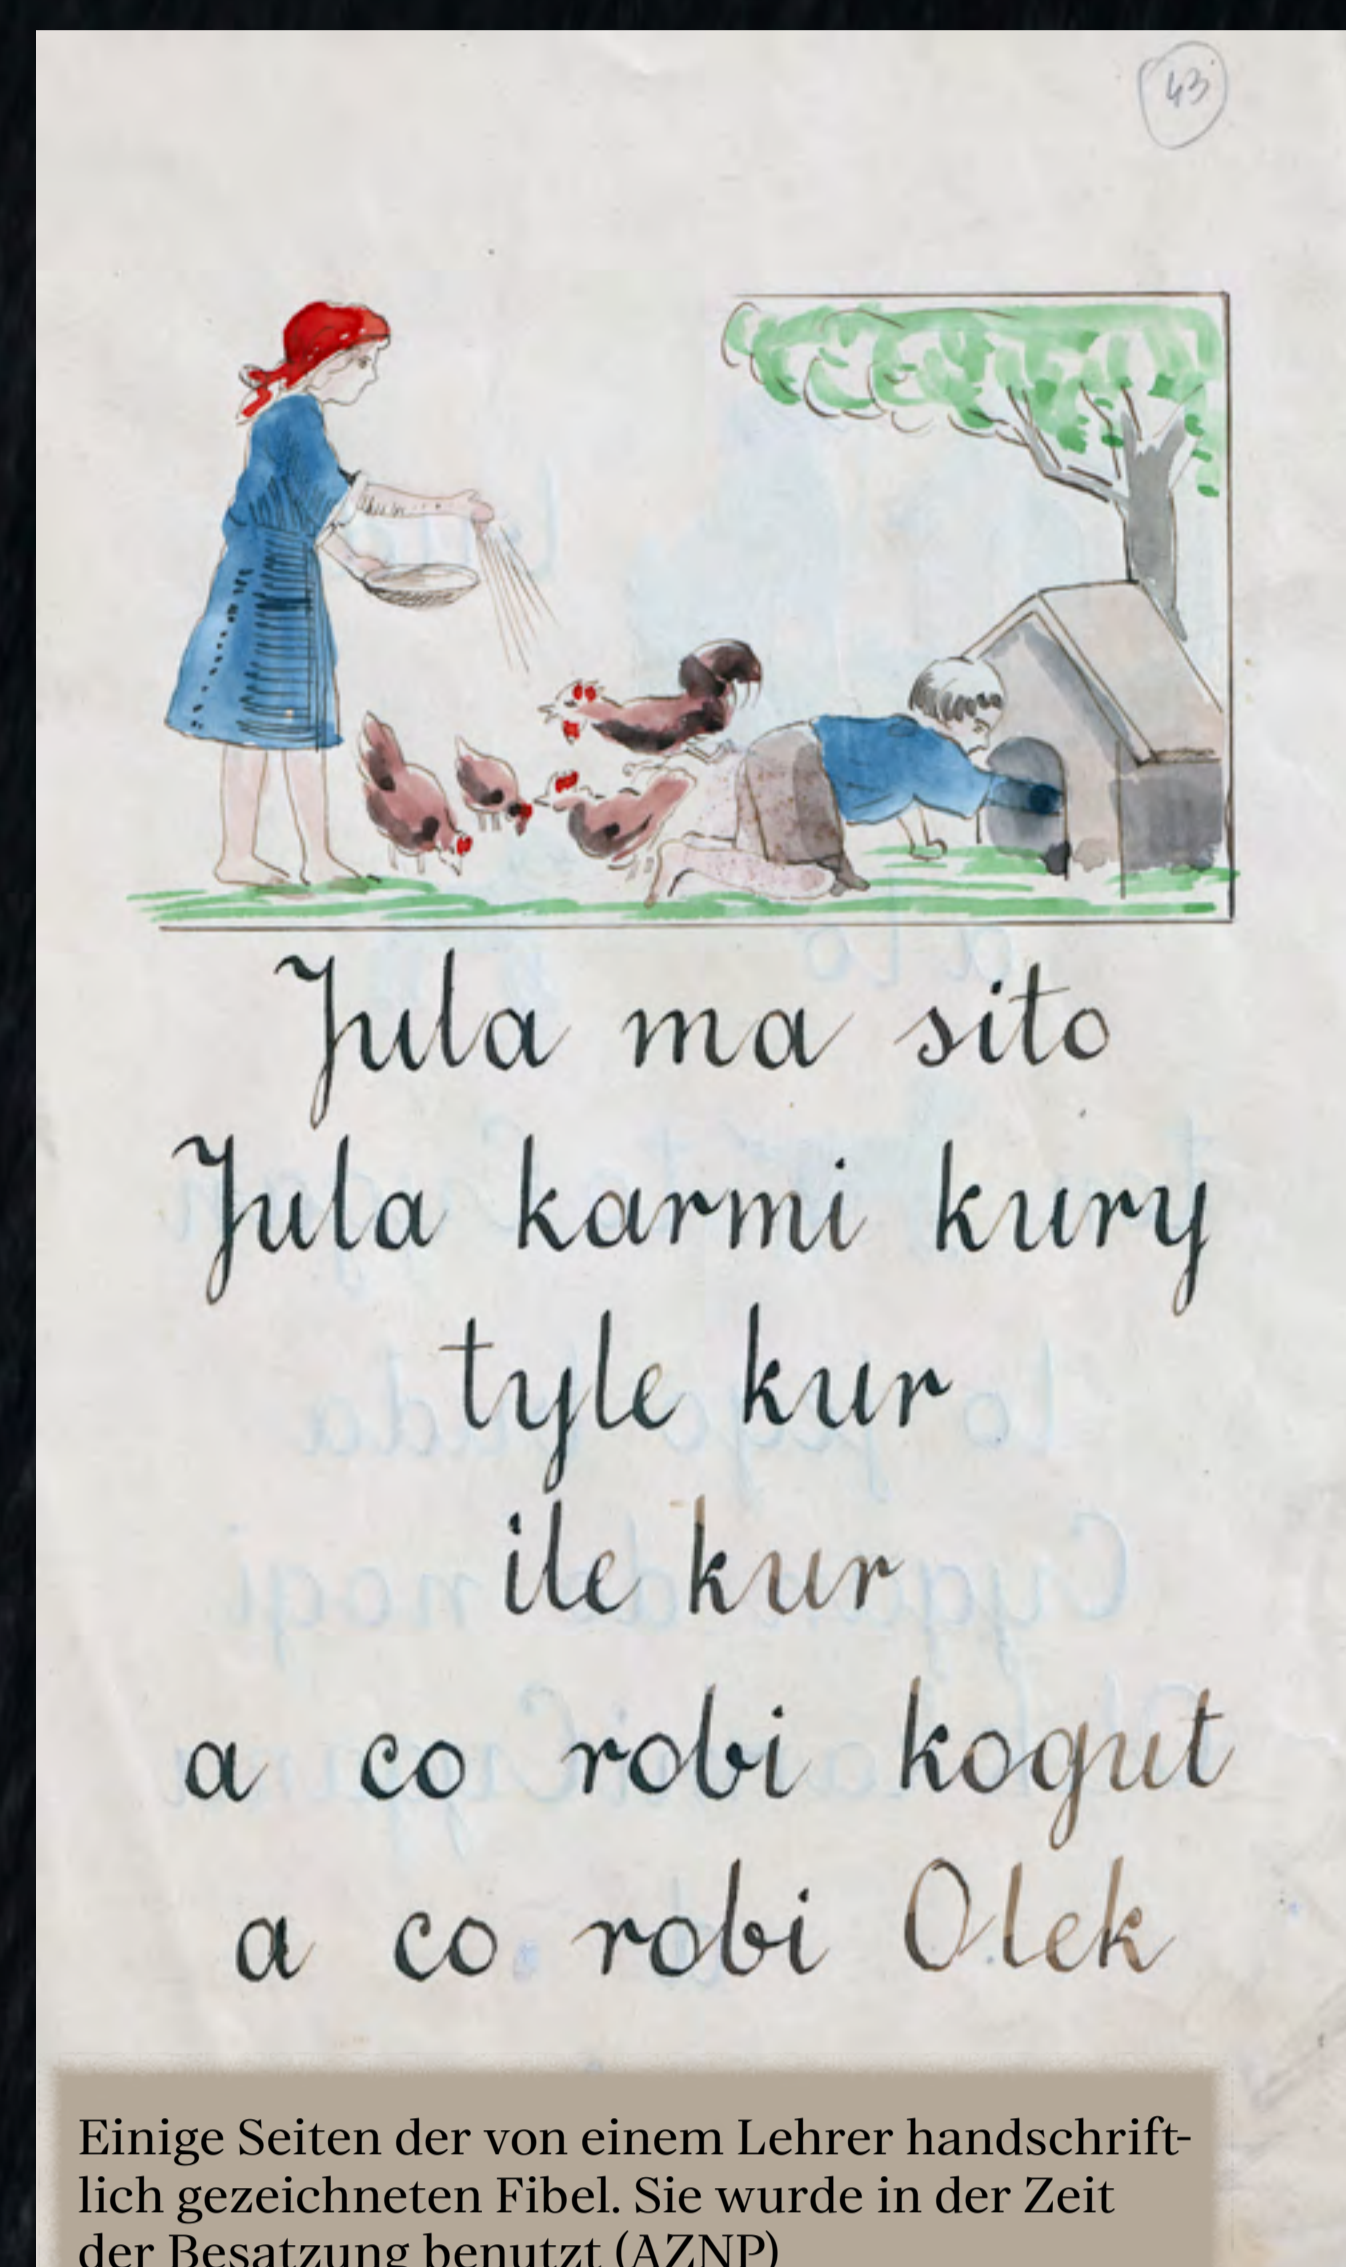 43
Jula ma sito
Jula karmi kury
tyle kur
ile kur
a co robi kogut
a co robi Olek
Einige Seiten der von einem Lehrer handschrift-
lich gezeichneten Fibel. Sie wurde in der Zeit
der Besatzung benutzt (AZNP)